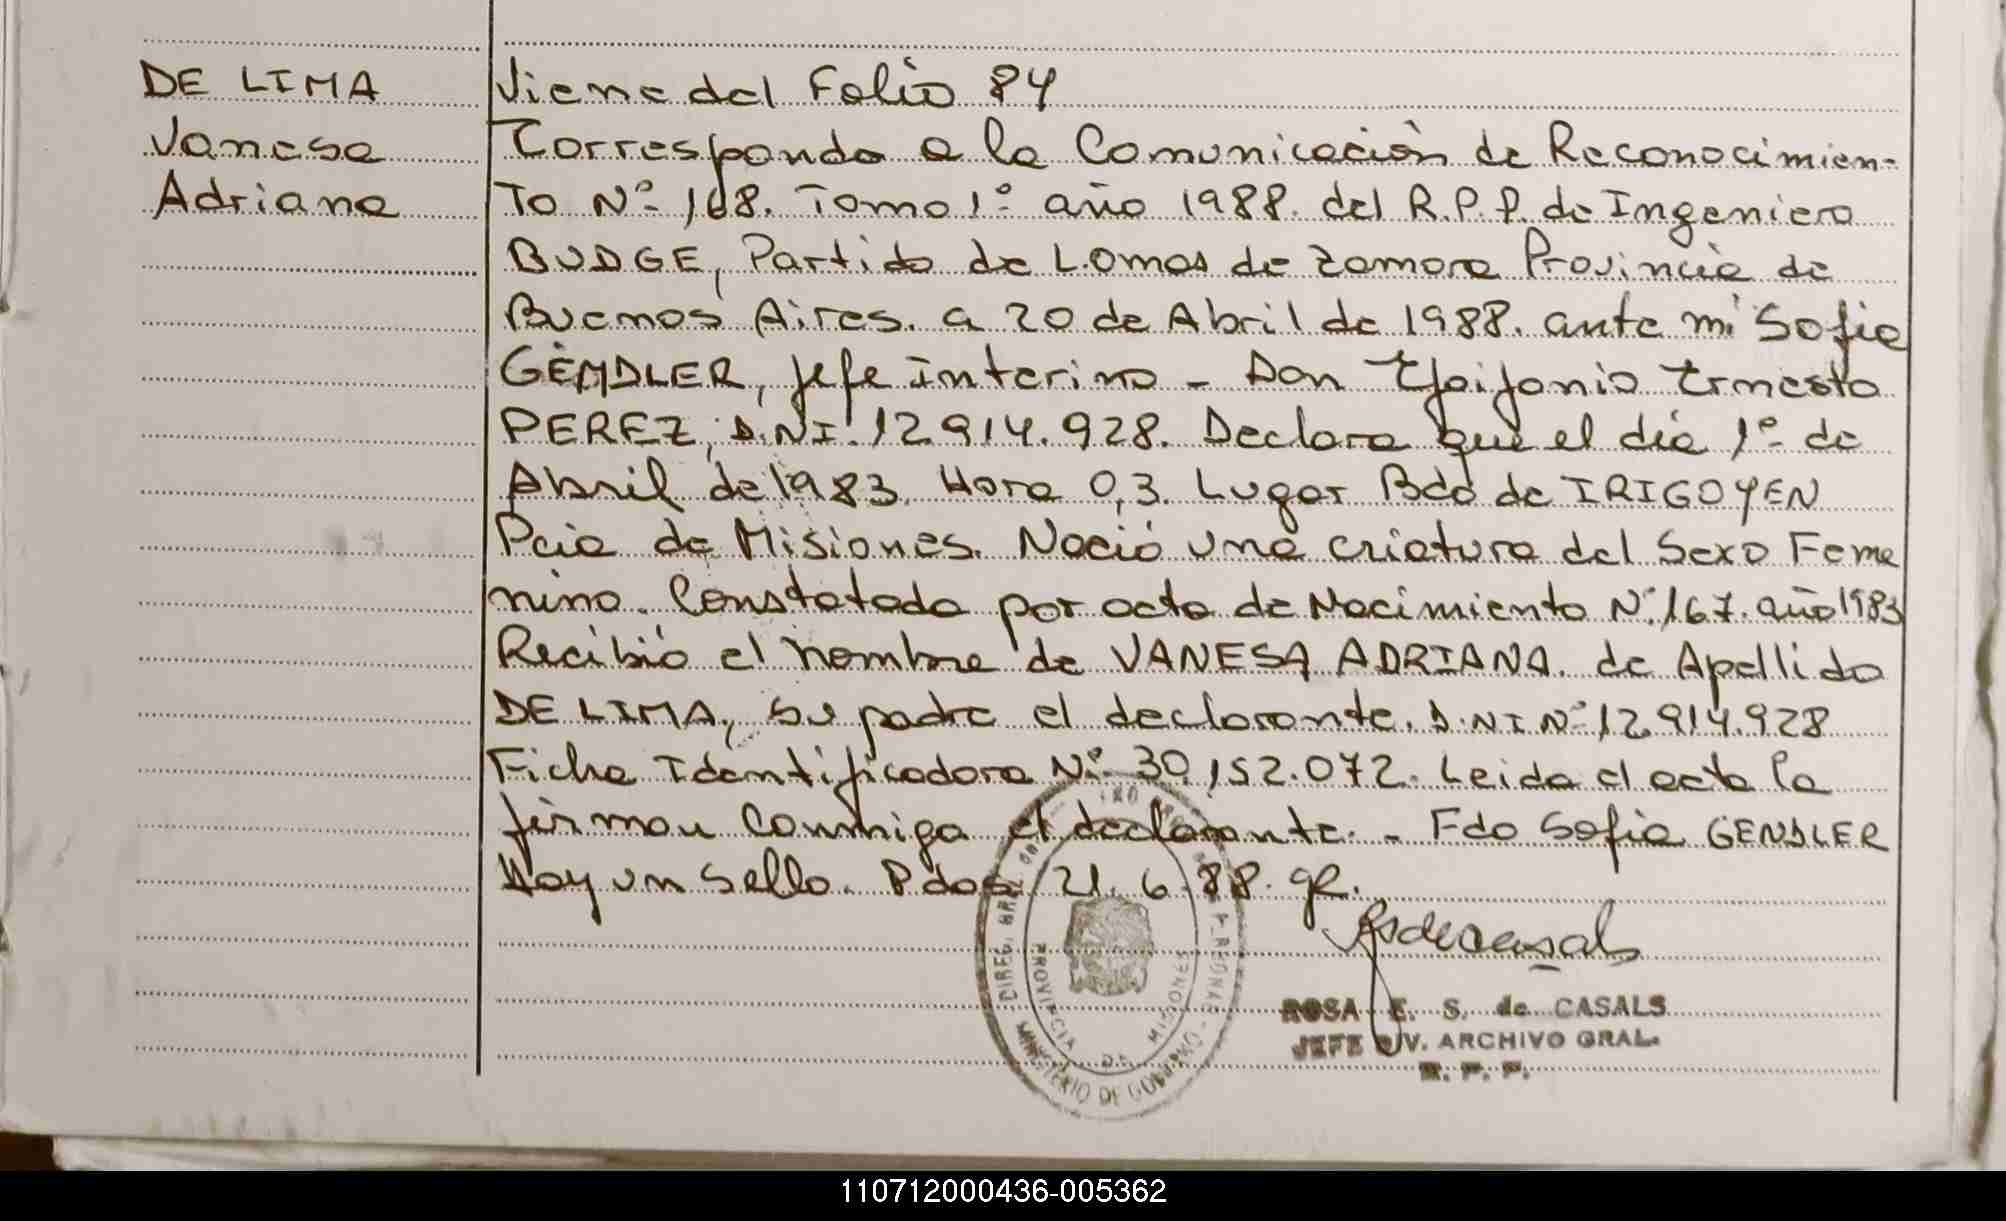 DE LIMA
Vanesa
Adriana
Viene del Folio 84
Corresponde a la Comunicación de Reconocimien-
to Nº 168. Tomo 1º año 1988. del R.P.P. de Ingeniero
BUDGE, Partido de Lomas de Zamora Provincia de
Buenos Aires. a 20 de Abril de 1988. ante mi Sofia
GENDLER, Jefe Interino - Don Epifanio Ernesto
PEREZ, D.NI. 12.914.928. Declara que el dia 1º de
Abril de 1983. Hora 0,3. Lugar Bdo de IRIGOYEN
Pcia de Misiones. Nació una criatura del Sexo Feme
nino. Constatado por acta de Nacimiento Nº 167. año 1983
Recibió el nombre de VANESA ADRIANA. de Apellido
DE LIMA, su padre el declarante. D.NI Nº 12.914.928
Ficha Identificadora Nº 30.152.072. Leida el acta la
firman conmigo el declarante. - Fdo Sofia GENDLER
Hay un Sello. Pdos. 21.6.88. gr.
ROSA E. S. de CASALS
JEFE DIV. ARCHIVO GRAL.
R. P. P.
PROVINCIA DE MISIONES
MINISTERIO DE GOBIERNO
110712000436-005362